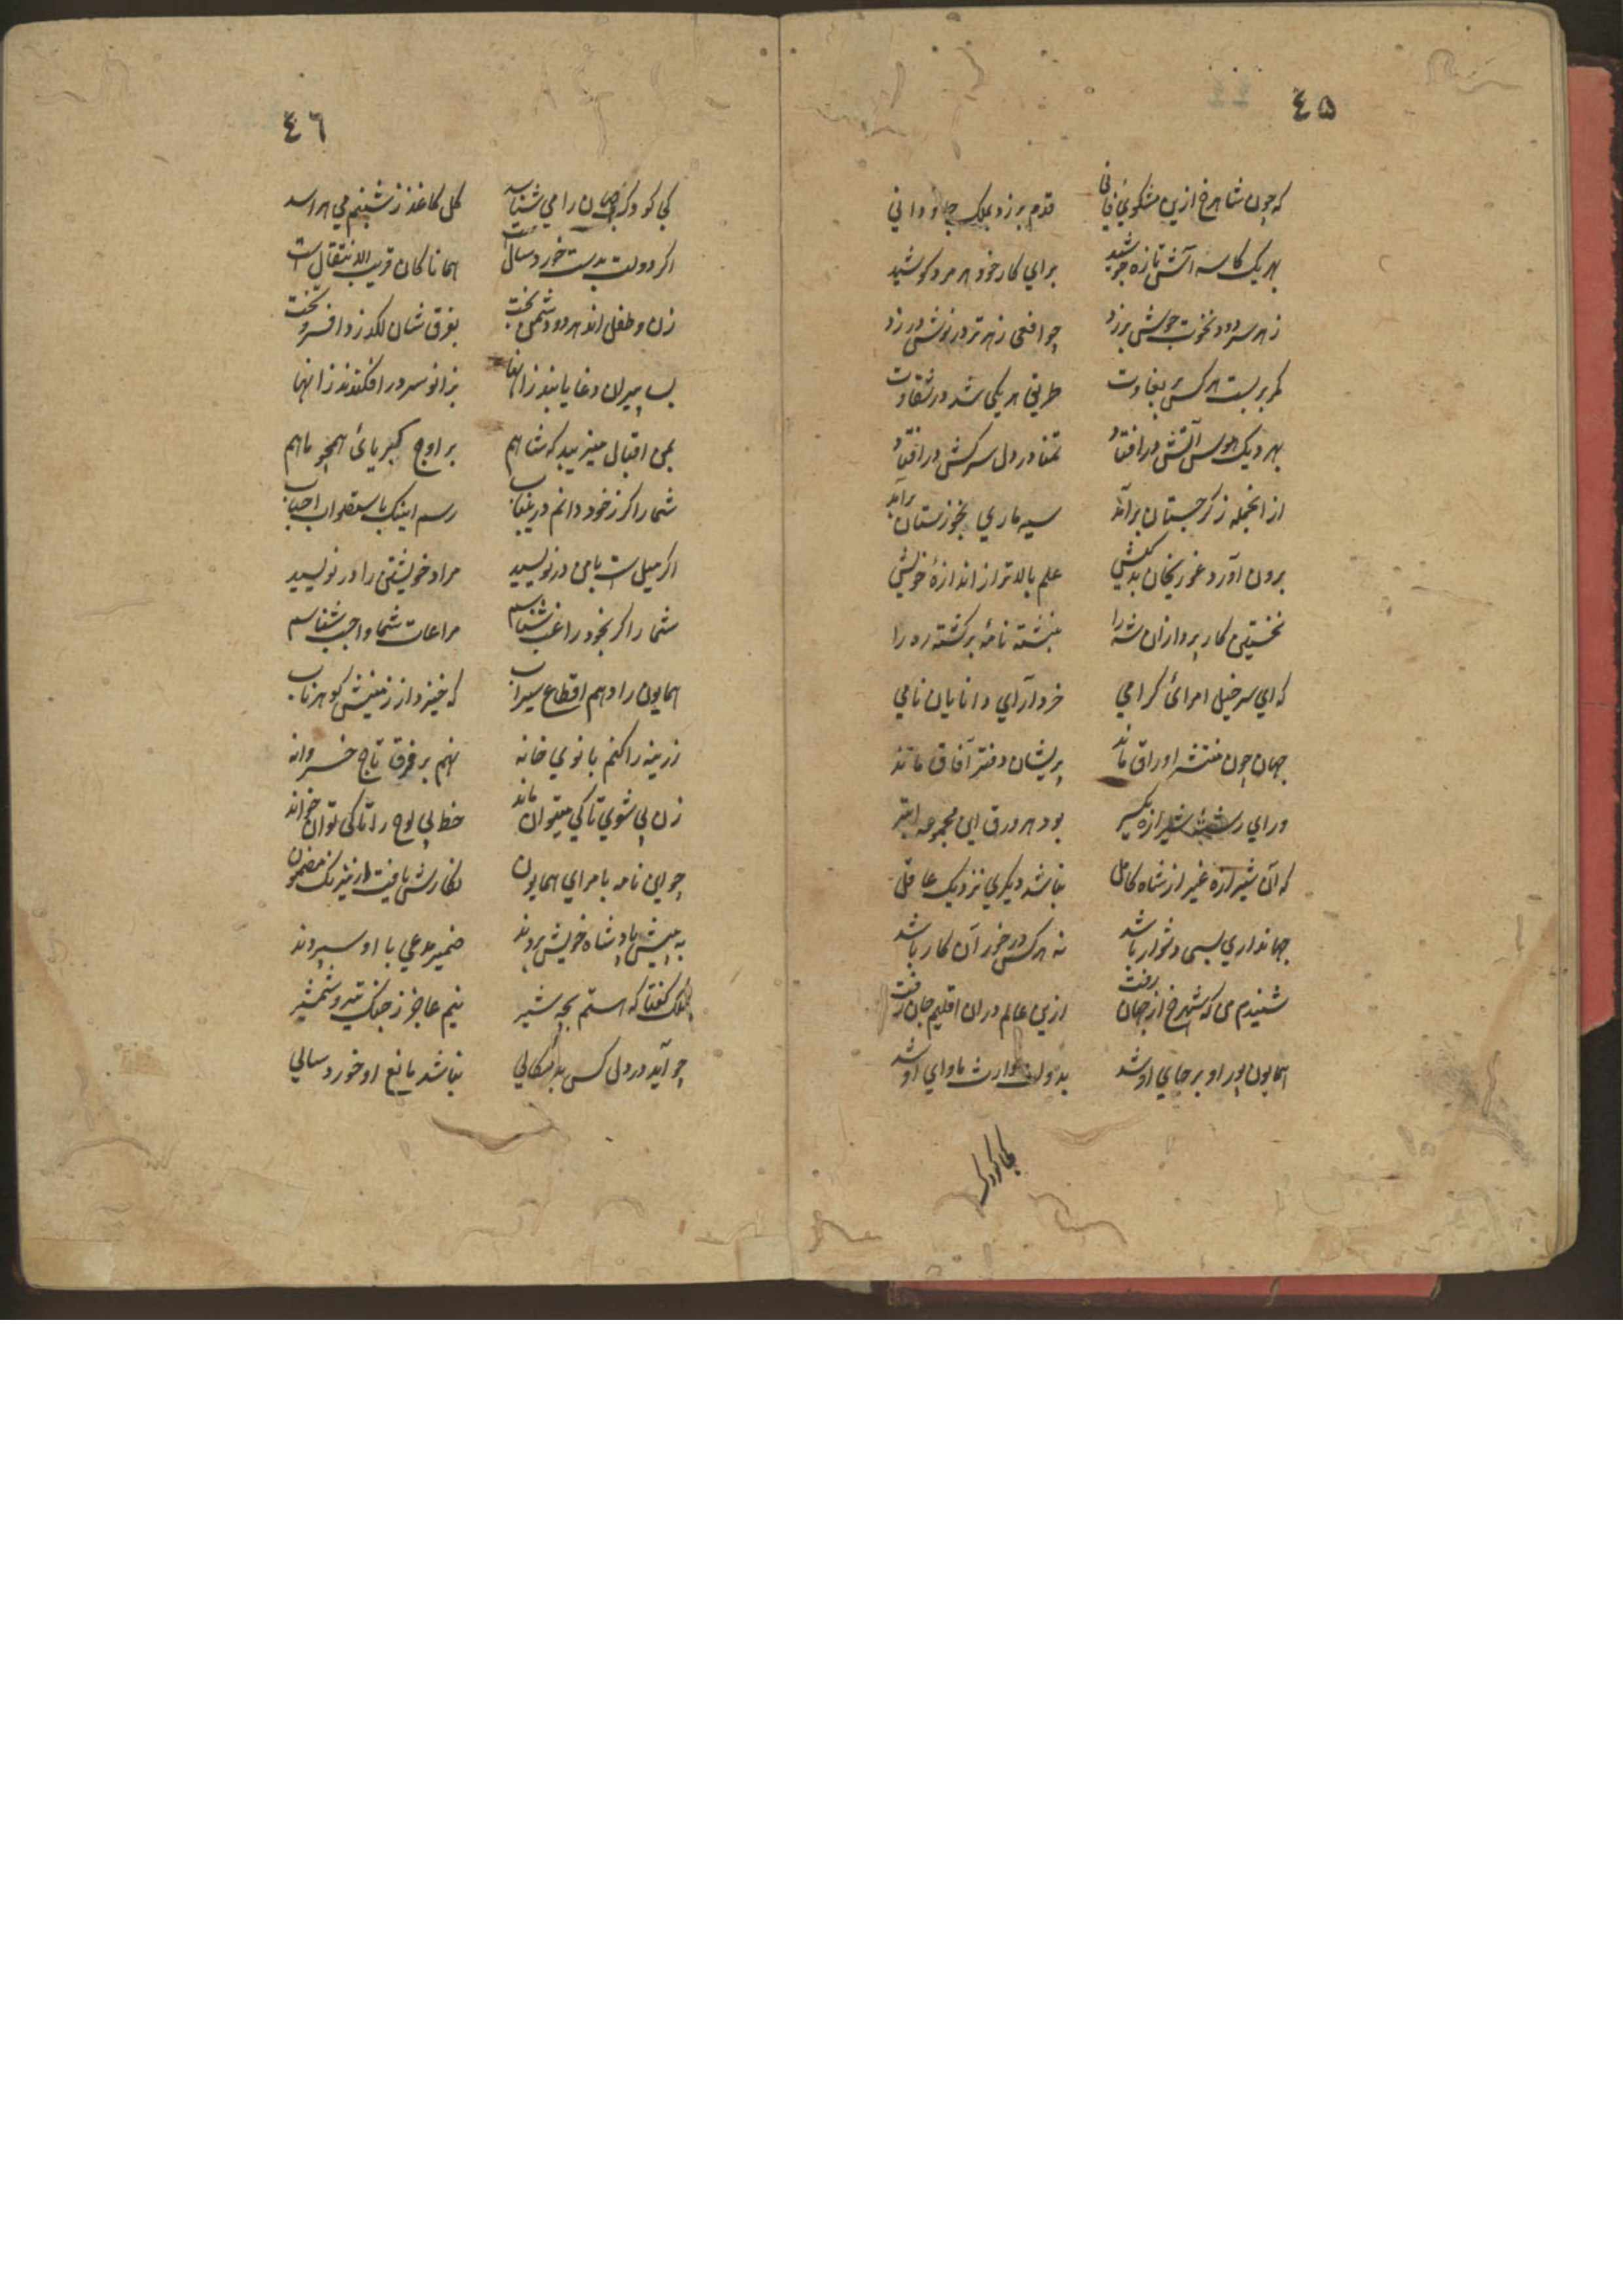 ٤٥
که چون شاهرخ ازین مشکوئ فانی قدم برزد بملک جاودانی
بهر یک کاسه آتش تازه جوشید برای کار خود هر مرد کوشید
ز هر سر دود نخوت جوش برزد چو افعی زهر تر در نوش در زد
کمر بربست هر کس بر بغاوت طریق هر یکی شد در شقاوت
بهر دیک هوس آتش درافتاد تمنا در دل سرکش درافتاد
از انجمله ز کرجستان برآمد سیه ماری بخوزستان برآمد
برون آورد غوریخان بدکیش علم بالاتر از اندازهٔ خویش
نخستین کار پردازان شه را نبشته نامهٔ برکشته ره را
که ای سر خیل امرائ کرامی خرد آرای دانایان نامی
جهان چون منتشر اوراق ماند پریشان دفتر آفاق ماند
ورای رشتهٔ شیرازه یکسر بود هر ورق این مجموعه ابتر
که آن شیرازه غیر از شاه کامل نباشد دیکری نزدیک عاقل
جهانداری بسی دشوار باشد نه هر کس در خور آن کار باشد
شنیدم من که شهرخ از جهان رفت ازین عالم دران اقلیم جان رفت
همایون پور او بر جای او شد بدولت وارث ماوای او شد
کجا کودک
٤٦
کجا کودک جهان را می شناسد کل کاغذ ز شبنم می هراسد
اکر دولت بدست خورد سالست همانا کان قریب الانتقال است
زن و طفل اند هر دو دشمن بخت بفرق شان لکد زد افسر و تخت
بسا پیران دغا یابند زانها بزانو سر درافکندند زانها
بمن اقبال میزیبد که شاهم بر اوج کبریائ همچو ماهم
شما را کر ز خود دانم درینباب رسم اینک باستصواب احباب
اکر میل است با من درنویسید مراد خویشتن را درنویسید
شما را کر بخود راغب شناسم مراعات شما واجب شناسم
همایون را دهم اقطاع سیراب که خیزد از زمینش کوهر ناب
زرینه را کنم بانوی خانه نهم بر فرق تاج خسروانه
زن بی شوی تا کی میتوان ماند خط بی لوح را تا کی توان خواند
چو این نامه بامرای همایون نکارش یافت از نیرنک مضمون
به پیش پادشاه خویش بردند ضمیر مدعی با او سپردند
ملک کفتا که هستم بچه شیر نیم عاجز ز جنک تیر و شمشیر
چو آید در دل کس بدسکالی نباشد مانع او خورد سالی